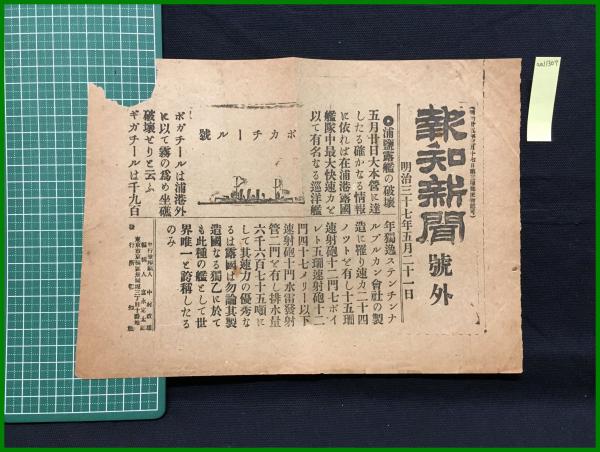 報知新聞
號外
明治三十七年五月二十一日
◎浦鹽露艦の破壞
五月廿日大本營に達
したる確かなる情報
に依れば在浦港露國
艦隊中最大快速力と
以て有名なる巡洋艦
ボガチール號
ボガチールは浦港外
に以て霧の爲め坐礁
破壞せりと云ふ
ボガチールは千九百
年獨逸ステンチンナ
ルブルカン會社の製
造に罹り速力二十四
ノツトを有し十五珊
速射砲十二門七ボイ
レト五珊速射砲十二
門四十七ミリー以下
速射砲十門水雷發射
管二門を有し排水量
六千六百七十五噸に
して其速力の優秀な
るは露國は勿論其製
造國なる獨乙に於て
も此種の艦として世
界唯一と誇稱したる
のみ